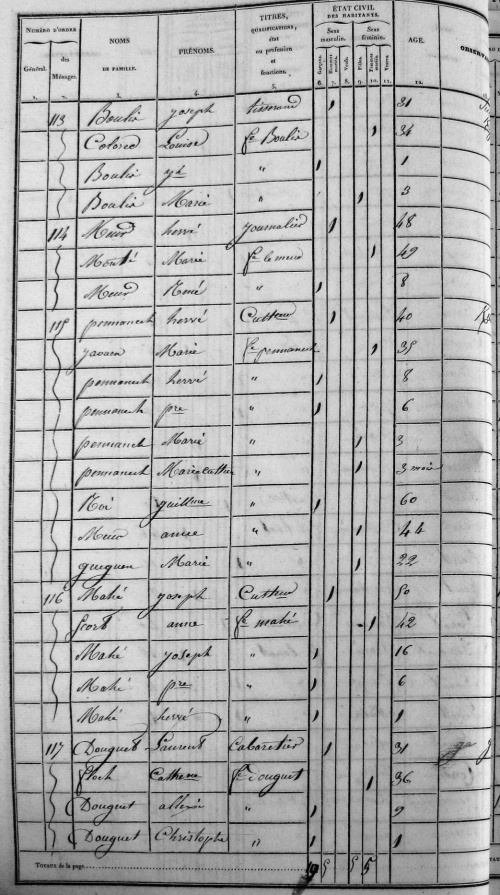 NUMÉRO D'ORDRE NOMS DE FAMILLE. PRÉNOMS. TITRES, QUALIFICATIONS, état ou profession et fonctions. ÉTAT CIVIL DES HABITANTS. AGE.
Général. des Ménages. Sexe masculin. Sexe féminin.
Garçons. Hommes mariés. Veufs. Filles. Femmes mariées. Veuves.
1. 2. 3. 4. 5. 6. 7. 8. 9. 10. 11. 12.
113 Boulic joseph tisserand 1 31
Louise fe Boulic 1 34
Boulic yd " 1 1
Boulic Marie " 1 3
114 Meur hervé journalier 1 48
Marie fe le meur 1 49
Meur René " 1 8
115 pennanech hervé Cultteur 1 40
yaouen Marie fe pennanech 1 35
pennanech hervé " 1 8
pennanech pre " 1 6
pennanech Marie " 1 3
pennanech Marie cattne " 1 3 mois
Roi guillme " 1 60
Meur anne " 1 44
gueguen Marie " 1 22
116 Mahé joseph Cultteur 1 50
Scort anne fe mahé 1 42
Mahé joseph " 1 16
Mahé pre " 1 6
Mahé hervé " 1 1
117 Douguet Laurent Cabaretier 1 31
floch Cathne fe Douguet 1 36
Douguet " 1 9
Douguet Christophe " 1 1
TOTAUX de la page 5 5 5